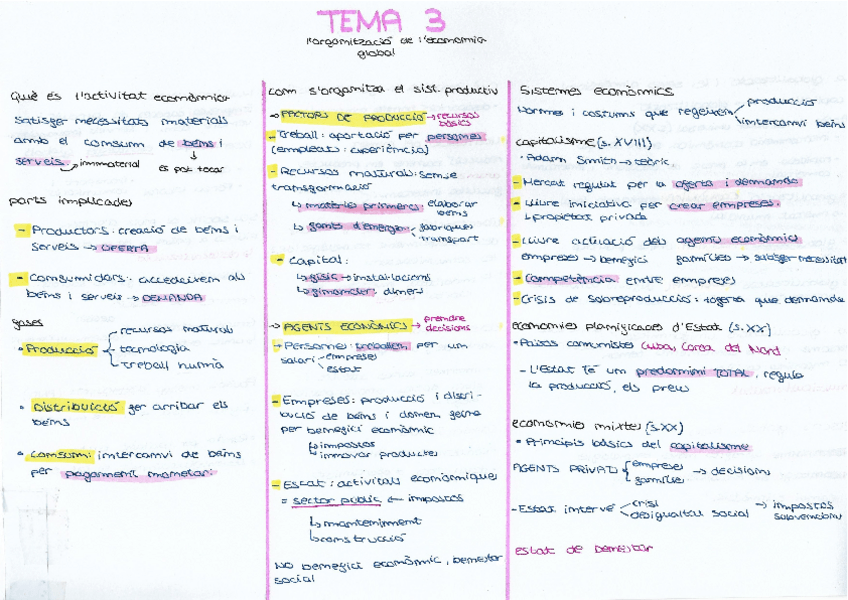 TEMA 3
l'organització de l'economia
global
Què és l'activitat econòmica
satisfer necessitats materials
amb el consum de béns i
serveis → immaterial
es pot tocar
parts implicades
- Productors: creació de béns i
serveis → OFERTA
- Consumidors: accedeixen als
béns i serveis → DEMANDA
fases
• Producció
recursos naturals
tecnologia
treball humà
• Distribució fer arribar els
béns
• Consum: intercanvi de béns
per pagament monetari
com s'organitza el sist. productiu
→ FACTORS DE PRODUCCIÓ → recursos
bàsics
- Treball: aportació per persones
(empleats: experiència)
- Recursos naturals: sense
transformació
↳ matèries primeres: elaborar
béns
↳ fonts d'energia
fàbriques
transport
- Capital:
↳ físic → instal·lacions
↳ financer: diners
→ AGENTS ECONÒMICS → prendre
decisions
- Persones: treballen per un
salari
empreses
estat
- Empreses: producció i distri-
bució de béns i donen feina
per benefici econòmic
↳ impostos
↳ innovar productes
- Estat: activitats econòmiques
= sector públic ← impostos
↳ manteniment
↳ construcció
NO benefici econòmic, benestar
social
Sistemes econòmics
Normes i costums que regeixen
producció
intercanvi béns
capitalisme (s. XVIII)
• Adam Smith → teòric
- Mercat regulat per la oferta i demanda
- Lliure iniciativa per crear empreses.
↳ propietat privada
- Lliure actuació dels agents econòmics
empreses → benefici famílies → satisfer necessitat
- Competència entre empreses
- Crisis de sobreproducció: +oferta que demanda
economies planificades d'Estat (s. XX)
• Països comunistes Cuba, Corea del Nord
- L'Estat té un predomini TOTAL, regula
la producció, els preus
economia mixtes (s. XX)
• Principis bàsics del capitalisme
AGENTS PRIVATS
empreses
famílies
→ decisions
- Estat intervé
crisi
desigualtat social
→ impostos
subvencions
estat de benestar